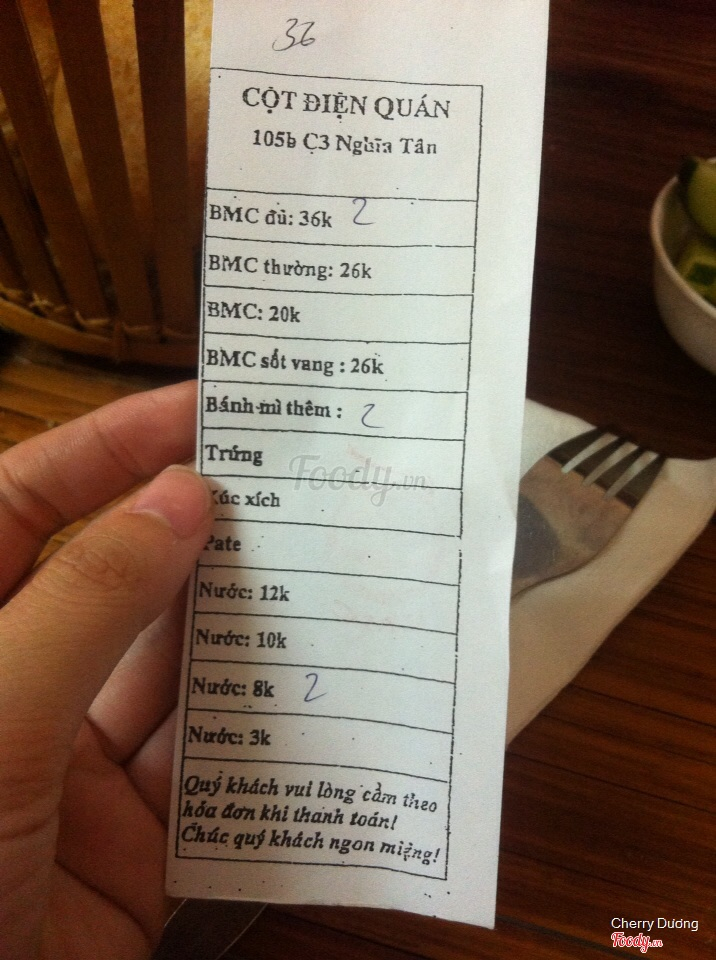 36
CỘT ĐIỆN QUÁN
105b C3 Nghĩa Tân
BMC đủ: 36k 2
BMC thường: 26k
BMC: 20k
BMC sốt vang : 26k
Bánh mì thêm : 2
Trứng
Xúc xích
Pate
Nước: 12k
Nước: 10k
Nước: 8k 2
Nước: 3k
Quý khách vui lòng cầm theo
hóa đơn khi thanh toán!
Chúc quý khách ngon miệng!
Foody.vn
Cherry Dương
Foody.vn